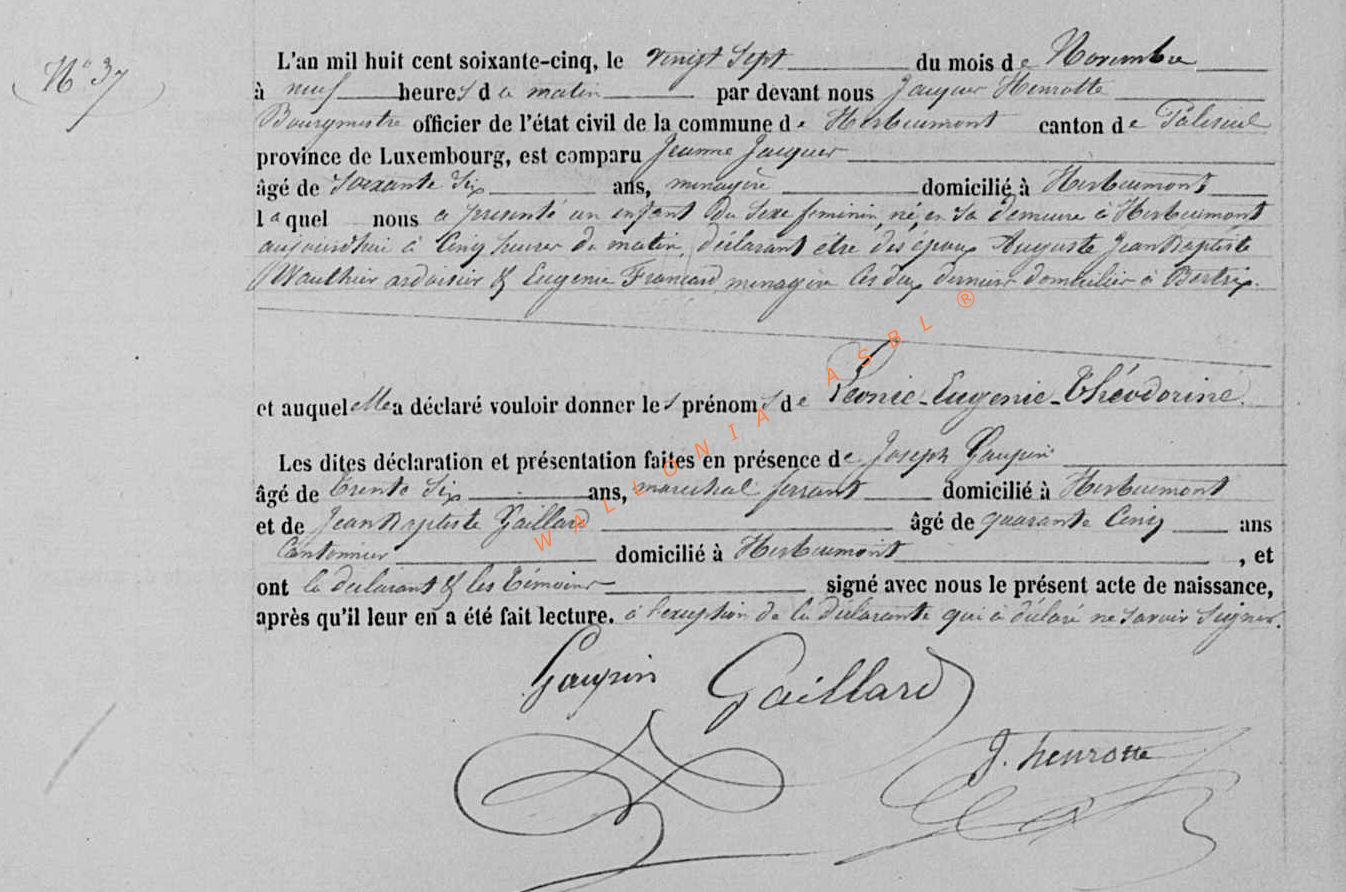 N° 37
L'an mil huit cent soixante-cinq, le vingt sept du mois de Novembre
à neuf heures du matin par devant nous Jacques Henrotte
Bourgmestre officier de l'état civil de la commune de Herbeumont canton de Paliseul
province de Luxembourg, est comparu Jeanne Jacques
âgé de Soixante Six ans, menagère domicilié à Herbeumont
laquel nous a presenté un enfant du sexe feminin, né, en sa demeure à Herbeumont
aujourdhui à Cinq heures du matin, déclarant être des époux Auguste JeanBaptiste
Wauthier ardoisier & Eugenie Francard menagère les deux derniers domicilier à Bertrix.
et auquel elle a déclaré vouloir donner les prénoms de Léonie-Eugenie-Théodorine.
Les dites déclaration et présentation faites en présence de Joseph Gaupin
âgé de Trente Six ans, marechal ferrant domicilié à Herbeumont
et de JeanBaptiste Gaillard âgé de quarante Cinq ans
Cantonnier domicilié à Herbeumont , et
ont la declarant & les témoins signé avec nous le présent acte de naissance,
après qu'il leur en a été fait lecture. à l'exception de la déclarante qui a déclaré ne savoir Signer.
Gaupin Gaillard
J. henrotte
WALLONIA ASBL ®